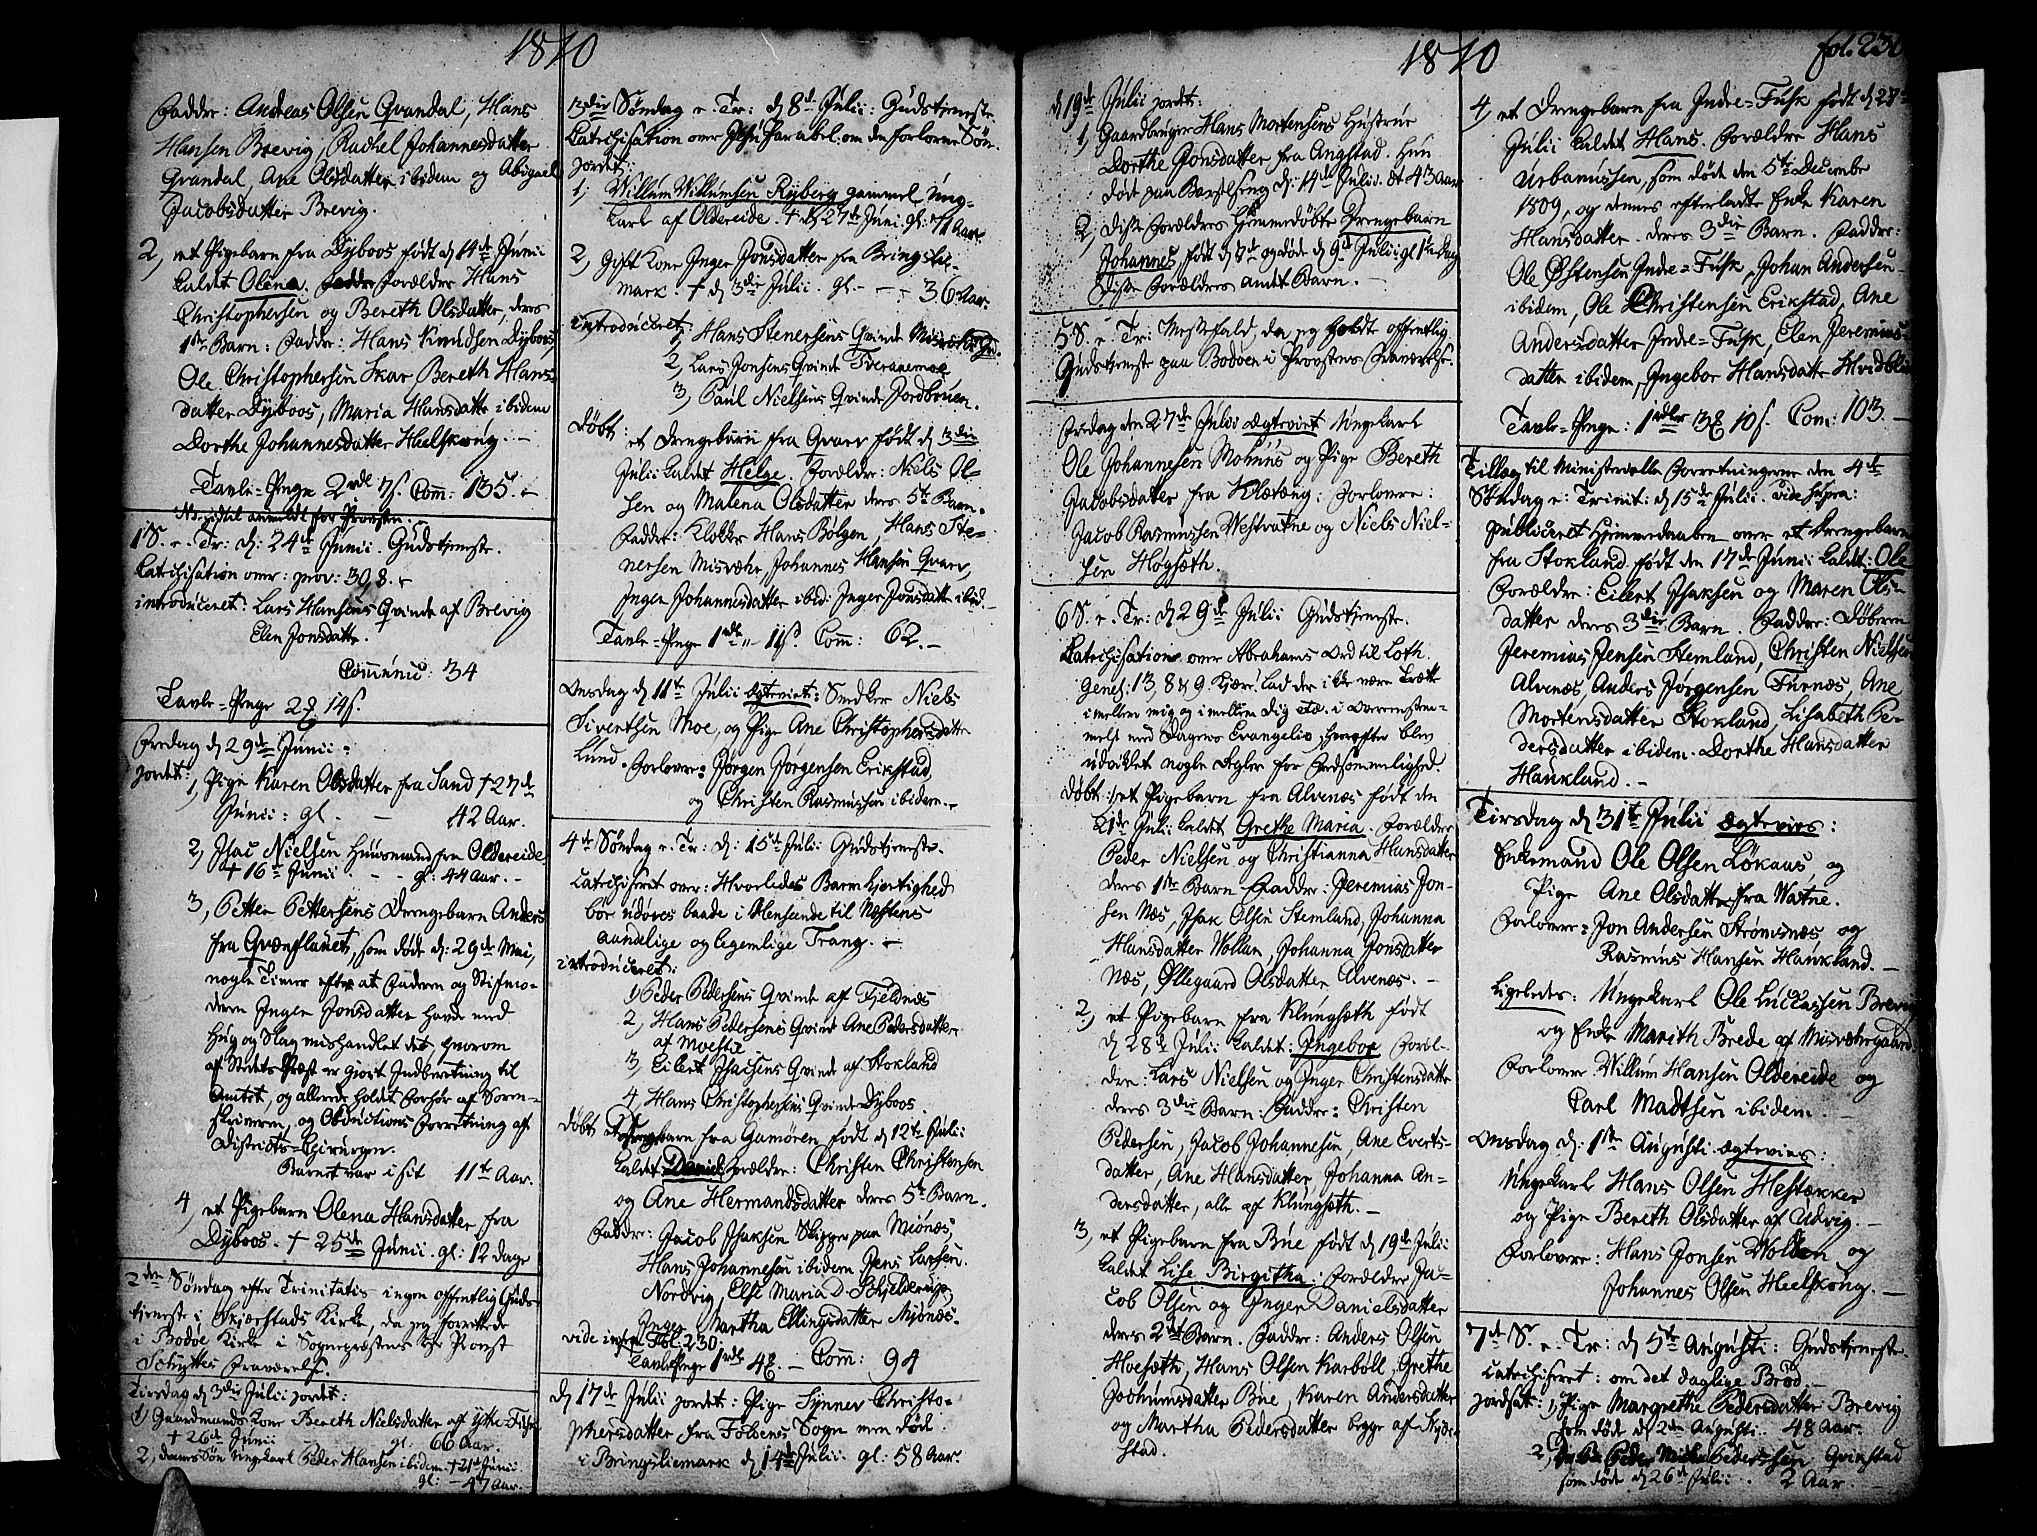 1810
Fadder: Andreas Olsen Qvandal, Hans
Hansen Brevig, Rachel Johannesdatter
Qvandal, Ane Olsdatter ibidem og Abigael
Jacobsdatter Brevig.
2, et Pigebarn fra Dyboos født d 14de Junii
kaldet Olena. Forældre Hans
Christophersen og Bereth Olsdatter, deres
1ste Barn: Fadder: Hans Knudsen Dyboos,
Ole Christophersen Skar, Bereth Hans-
datter Dyboos, Maria Hansdatter ibidem
Dorthe Johannesdatter Heelskong. —
Tavle-Penge 2 rdl 7 s. Com: 135. —
NB hidtil anmeldt for Provsten.
1 S. e. Tr: d: 24de Junii. Gudstjeneste.
Catechisation over: prov: 30, 8.
introduceret: Lars Hansens Qvinde af Brevig
Elen Jonsdatter.
Communic: 34
Tavle-Penge 2 14 s.
Fredag d 29de Junii:
jordet: 1, Pige Karen Olsdatter fra Sand † 27de
Junii: gl. — 42 Aar.
2, Isac Nielsen Huusmand fra Oldereide
† 16de Junii. — gl: 44 Aar. —
3, Petter Pettersens Drengebarn Anders
fra Grønflauet, som døde d: 29de Mai,
nogle Timer efter at Faderen og Stifmo-
deren Inger Jonsdatter havde med
Hug og Slag mishandlet det hvorom
af Stedets Præst er gjort Indberetning til
Amtet, og allerede holdet Forhør af Soren-
skriveren, og Obductions Forretning af
Districts-Chirurgen.
Barnet var i sit 11te Aar.
4, et Pigebarn Olena Hansdatter fra
Dyboos. † 25de Junii. gl: 12 dage
2den Søndag efter Trinitatis ingen offentlig Guds-
tjeneste i Skjerstads Kirke, da jeg forrettede
i Bodøe Kirke i Sogneprestens Hr Provst
Schyttes Fraværelse.
Tirsdag d 3die Julii jordet:
1, Gaardmands Kone Bereth Nielsdatter af Ytre-Fuske
† 26de Junii gl: 66 Aar.
2, dennes Søn Ungekarl Peder Hansen ibidem. † 21de Junii
gl: — 47 Aar.
3die Søndag e. Tr: d 8de Julii: Gudstjeneste.
Catechisation over Jesu Parabel: om de forlorne Søn.
jordet:
1, Willum Willumsen Ryberg gammel Ung-
karl af Oldereide. † d 27de Juni. gl: 71 Aar.
2, Gift Kone Inger Jonsdatter fra Bringslie-
mark. † d 3die Julii. gl. — — 36 Aar.
introduceret: 1, Hans Stenersens Qvinde Misvær
2, Lars Jonsens Qvinde Tveraamoe
3, Paul Nielsens Qvinde Jordbruen.
Døbt: et Drengebarn fra Qvarv født d 3die
Julii kaldet Helge. Forældre: Niels Ol-
sen og Malena Olsdatter deres 5te Barn.
Fadder: Klokker Hans Bølgen, Hans Ste-
nersen Misvæhr, Johannes Hansen Qvarv,
Inger Johannesdatter ibid: Inger Jonsdatter ibid.
Tavle-Penge 1 rdl „ 11 s. Comm: 62. —
Onsdag d 11te Julii ægteviet: Enkemand Niels
Siverthsen Moe, og Pige Ane Christophersdatter
Lund. Forlovere: Jørgen Jørgensen Erikstad
og Christen Rasmussen ibidem. —
4de Søndag e. Tr: d: 15de Julii Gudstjeneste.
Catechiseret over: Hvorledes Barmhjertighed
bør udøves baade i Henseende til Næstens
aandelige og legemlige Trang. —
introduceret:
1, Peder Pedersens Qvinde af Fjeldnæs
2, Hans Pedersens Qvinde Ane Pedersdatter
af Moestie
3, Eilert Isacsens Qvinde af Stokland
4, Hans Christophersens Qvinde Dyboos.
Døbt et Drengebarn fra Gamøren født d 12te Julii
kaldet Daniel Forældre: Christen Christensen
og Ane Hermandsdatter deres 5te Barn.
Fadder: Jacob Isaksen Skipper paa Miønæs,
Hans Johannesen ibidem Jens Larsen
Nordvig, Else Maria D. Schjelderup,
Inger Martha Ellingsdatter Mjønæs.
vide infra Fol. 230:
Tavle-Penge 1 rdl 4. — Com: 94
d 17de Julii jordet: Pige Synnev Christo-
phersdatter fra Foldens Sogn men død
i Bringsliemark d 14de Julii. gl: 58 Aar.
1810
fol. 230
d 19de Julii jordet:
1, Gaardbruger Hans Mortensens Hustrue
Dorthe Jonsdatter fra Angstad. Hun
døde paa Barselseng d: 14de Julii. æt 43 Aar
2, Disse Forældres hjemmedøbte Drengebarn
Johannes født d 8de og døde d 9de Julii: gl 1 Dag
Disse Forældres andet Barn. —
5 S. e. Tr: Messefald, da jeg holdte offentlig
Gudstjeneste paa Bodøen i Provstens Fraværelse.
Fredag den 27de Julii ægteviet Ungekarl
Ole Johannesen Mohuus og Pige Bereth
Jacobsdatter fra Kletæng: Forlovere:
Jacob Rasmussen Westvatne og Niels Niel-
sen Høgseth.
6 S. e. Tr: d 29de Julii Gudstjeneste.
Catechisation over Abrahams Ord til Loth.
Genes: 13, 8 & 9. Kjære! lad der ikke være Trætte
imellem mig og imellem dig etc. i Overensstem-
melse med Dagens Evangelio, hvorefter blev
udviklet nogle Regler for Fredsommelighed.
Døbt: 1, et Pigebarn fra Alvenæs født den
21de Julii kaldet Grethe Maria. Forældre
Peder Nielsen og Christianna Hansdatter
deres 1ste Barn Fadder: Jeremias Jon-
sen Næs, Isak Olsen Stemland, Johanna
Hansdatter Wollan, Johanna Jonsdatter
Næs, Øllegaard Olsdatter Alvenæs. —
2, et Pigebarn fra Klungseth født
d 28de Julii kaldet: Ingebor Foræl-
dre: Lars Nielsen og Inger Christensdatter
deres 3die Barn: Fadder: Christen
Pedersen, Jacob Johannesen, Ane Everts-
datter, Ane Hansdatter, Johanna An-
dersdatter, alle af Klungseth. —
3, et Pigebarn fra Bue født d 19de Julii
kaldet Lise Birgitha: Forældre Ja-
cob Olsen og Inger Danielsdatter
deres 2det Barn. Fadder: Anders Olsen
Hoeseth, Hans Olsen Karbøll, Grethe
Jochumsdatter Bue, Karen Andersdatter
og Martha Pedersdatter begge af Skjer-
stad.
4, et Drengebarn fra Indre-Fusk født d 27de
Julii kaldet Hans. Forældre Hans
Urbanussen, som døde den 5te Decembr
1809, og dennes efterladte Enke Karen
Hansdatter. deres 3die Barn. Fadder:
Ole Østensen Indre-Fusk, Johan Andersen
ibidem, Ole Christensen Erikstad, Ane
Andersdatter Indre-Fusk, Elen Jeremias-
datter ibidem, Ingebor Hansdatter Hvidblik
Tavle-Penge: 1 rdlr 3 10 s. Com: 103. —
Tillæg til Ministerielle Forretningerne den 4de
Søndag e: Trinit: d 15de Julii. vide supra:
publiceret Hjemmedaaben over et Drengebarn
fra Stokland født den 17de Junii kaldt: Ole
Forældre: Eilert Isaksen og Maren Ols-
datter deres 3die Barn. Fadder: Døberen
Jeremias Jensen Stemland, Christen Nielsen
Alvenæs Anders Jørgensen Furnæs, Ane
Mortensdatter Stokland, Lisabeth Pe-
dersdatter ibidem. Dorthe Hansdatter
Haukland. —
Tirsdag d 31te Julii ægtevies:
Enkemand Ole Olsen Løkaas, og
Pige Ane Olsdatter fra Watne.
Forlovere: Jon Andersen Strømsnæs og
Rasmus Hansen Haukland. —
Ligeledes: Ungekarl Ole Luccassen Brevig
og Enke Marith Brede af Misværhrgaard.
Forlovere: Willum Hansen Oldereide og
Carl Madtsen ibidem.
Onsdag d: 1ste Augusti ægtevies:
Ungekarl Hans Olsen Hestækker
og Pige Bereth Olsdatter af Udvig. —
Forlovere: Hans Jonsen Wolden og
Johannes Olsen Heelskong. —
7de S. e. Tr: d 5te Augusti: Gudstjeneste.
Catechiseret: om det daglige Brød. —
jordfæst: 1, Pige Margrethe Pedersdatter Brevig
som døde d 2de Augusti. 48 Aar.
2, Pedersen Qvikstad
som døde d 26de Julii. 2 Aar. —